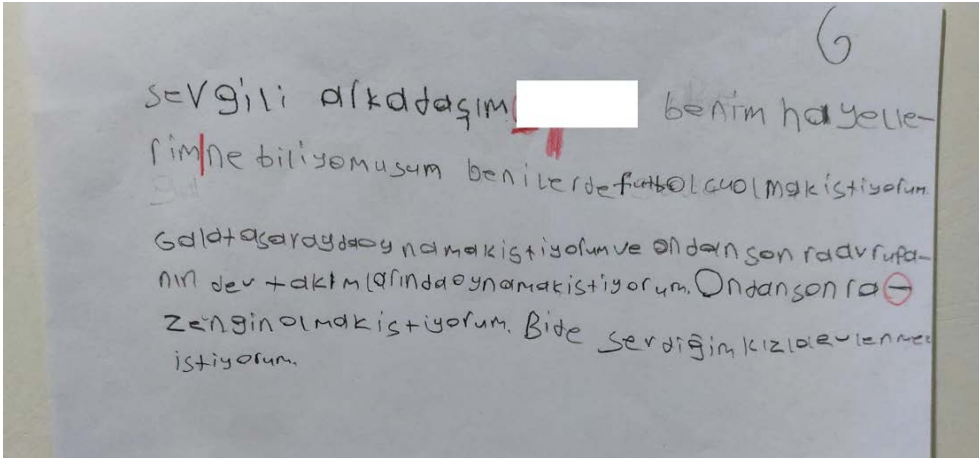 6
sevgili alkadaşım benim hayelle-
rim ne biliyomusum ben ilerde futbolcu olmak istiyorum.
Galatasarayda oynamak istiyorum ve ondan sonra avrupa-
nın dev takımlarında oynamak istiyorum. Ondan sonra
zengin olmak istiyorum. Bide serdiğim kızla evlenmek
istiyorum.